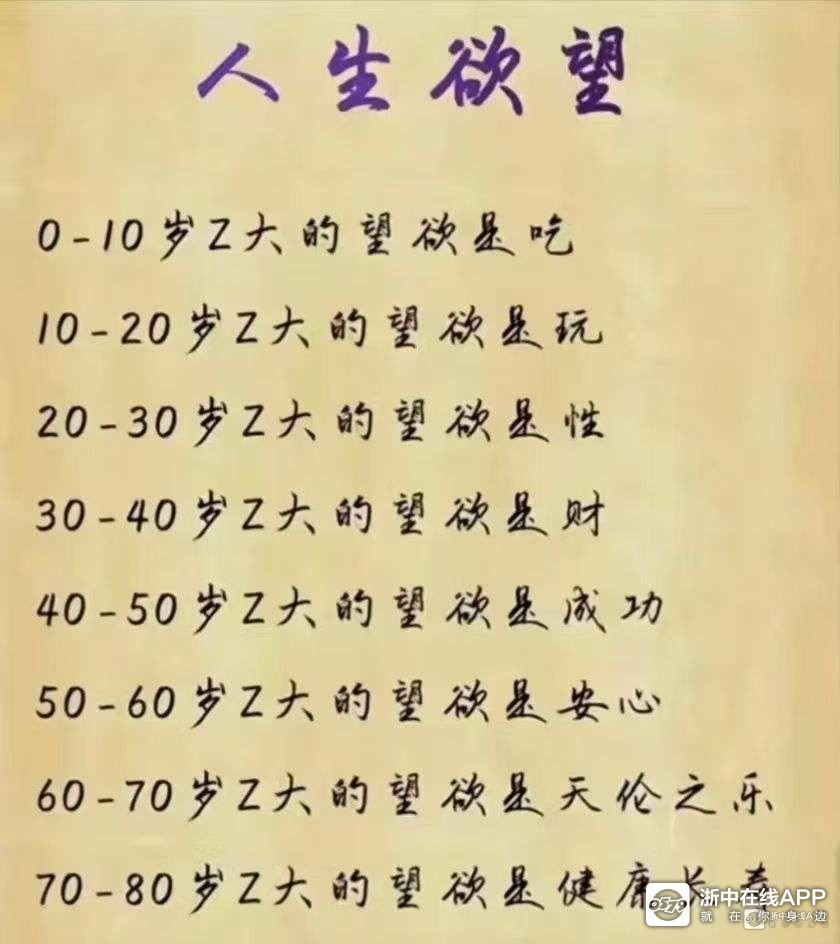 人生欲望
0-10岁Z大的望欲是吃
10-20岁Z大的望欲是玩
20-30岁Z大的望欲是性
30-40岁Z大的望欲是财
40-50岁Z大的望欲是成功
50-60岁Z大的望欲是安心
60-70岁Z大的望欲是天伦之乐
70-80岁Z大的望欲是健康长寿
浙中在线APP
就在你身边